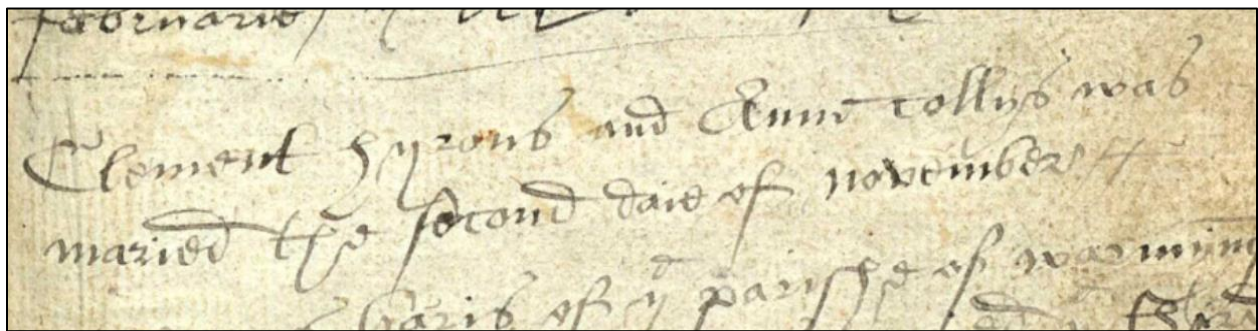 februarie
Clement hyrons and Anne Collys was
maried the second daie of november
of yͤ parishe of warmyn